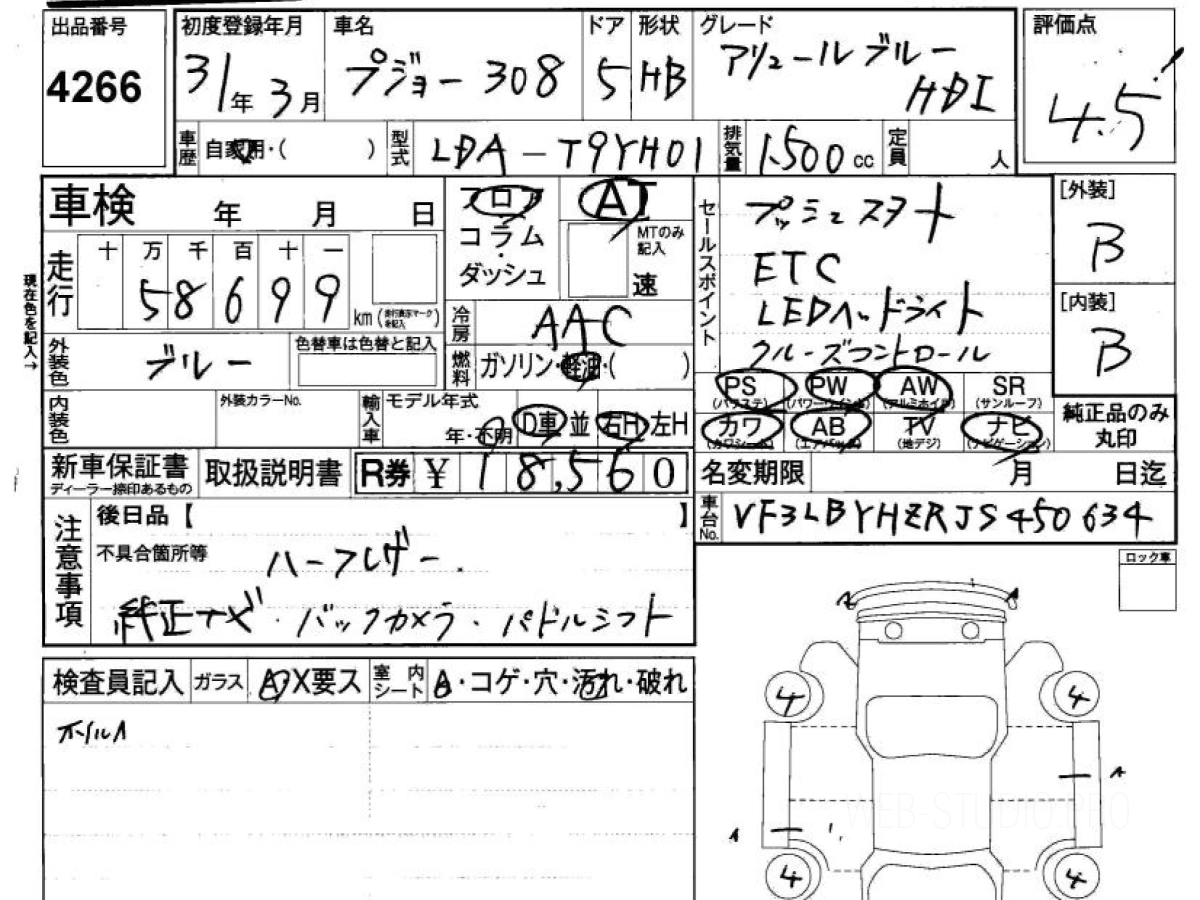 出品番号
4266
初度登録年月
31年3月
車名
プジョー 308
ドア
5
形状
HB
グレード
アリュールブルー
HDI
評価点
4.5
車歴
自家用・( )
型式
LDA-T9YH01
排気量
1.500cc
定員
人
車検 年 月 日
走行
十 万 千 百 十 一
58699
km(走行表示マークを記入)
現在色を記入→
フロア
コラム
ダッシュ
AT
MTのみ記入
速
冷房
AAC
燃料
ガソリン・軽油・( )
セールスポイント
プッシュスタート
ETC
LEDヘッドライト
クルーズコントロール
[外装]
B
[内装]
B
外装色
ブルー
色替車は色替と記入
内装色
外装カラーNo.
輸入車
モデル年式
年・不明
D車 並
右H 左H
PS (パワステ)
PW (パワーウインド)
AW (アルミホイル)
SR (サンルーフ)
カワ (カワシート)
AB (エアバック)
TV (地デジ)
ナビ (ナビゲーション)
純正品のみ丸印
新車保証書
ディーラー捺印あるもの
取扱説明書
R券 ¥ 18,560
名変期限 月 日迄
車台No.
VF3LBYHZRJS450634
注意事項
後日品【 】
不具合箇所等
ハーフレザー.
純正ナビ・バックカメラ・パドルシフト
ロック車
検査員記入
ガラス
A・X要ス
室内シート
A・コゲ・穴・汚れ・破れ
ホイルA
A
4
4
A
A
4
4
WEB-STUDIO.PRO